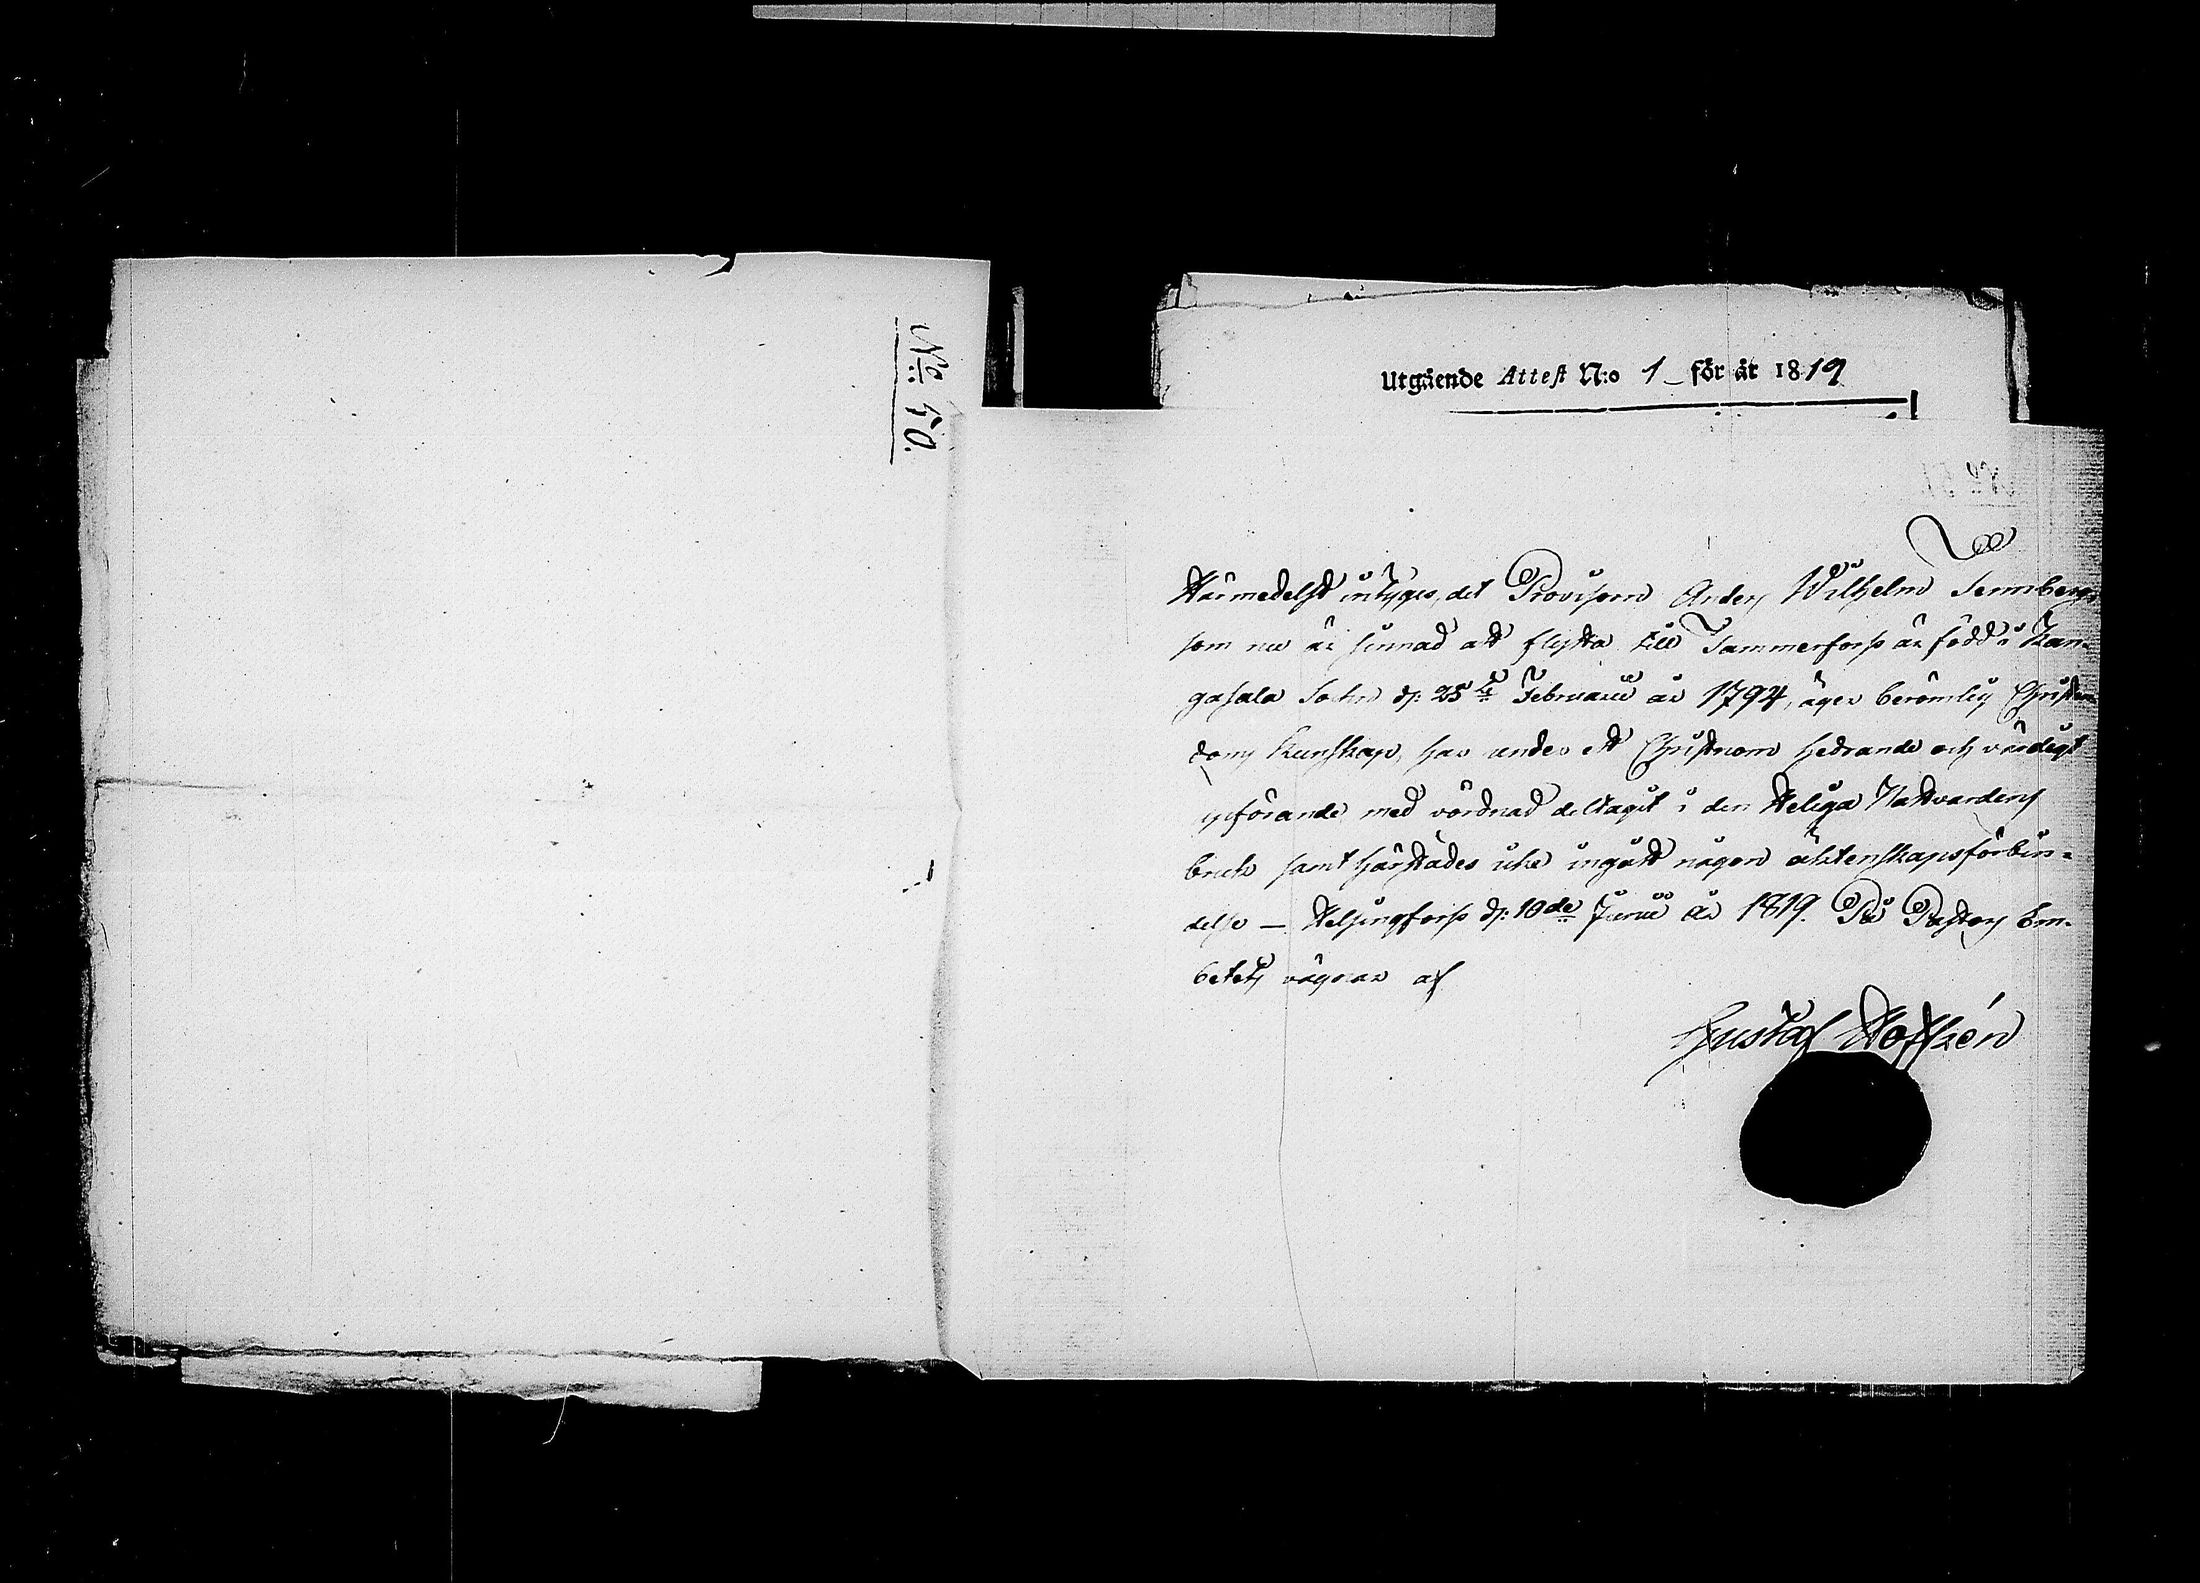 N:o 50.
Utgående Attest N:o 1 för år 1819
Härmedelst intygas, det Provisorn Anders Wilhelm Tennberg
som nu är sinnad att flytta till Tammerfors är född i Kan-
gasala Sokn d: 25 Februarii år 1794, äger berömlig Christen-
doms kunskap, har under ett Christnom hedrande och värdigt
upförande med vördnad deltagit i den Heliga Nattvardens
bruk samt härstädes icke ingått någon äktenskapsförbin=
delse — Helsingfors d: 10de Junii år 1819. På Pastors Em-
betets vägnar af
Gustaf